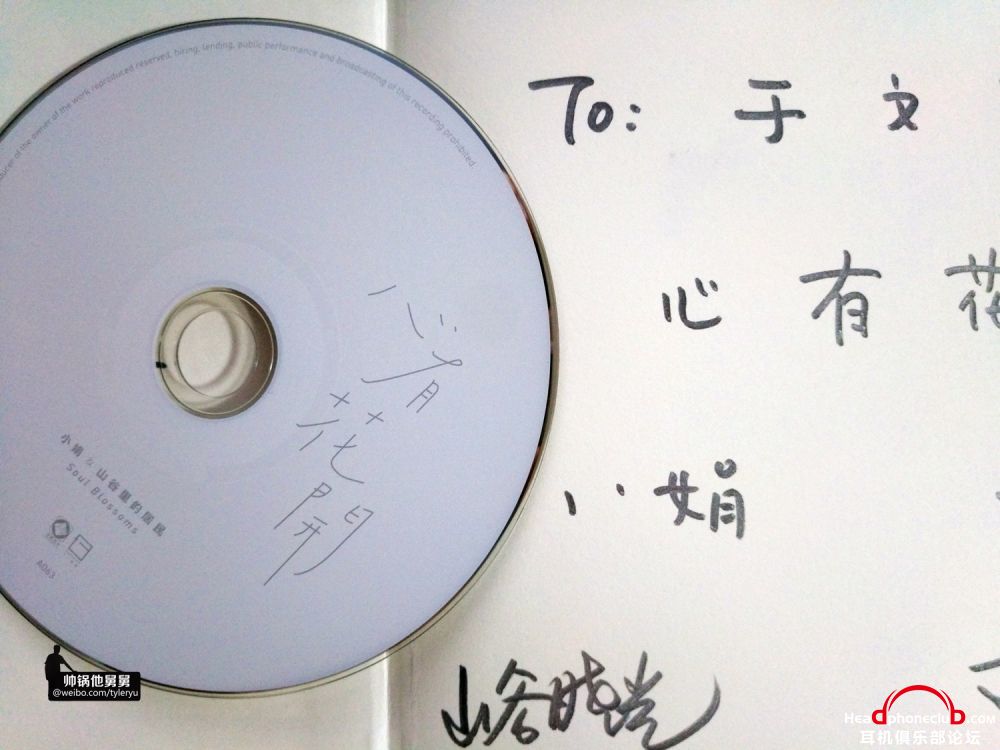 ducer of the owner of the work reproduced reserved. hiring, lending, public performance and broadcasting of this recording prohibited.
心有
花開
小娟&山谷里的居民
Soul Blossoms
A063
To: 于文
心有花
小娟
山谷
帅锅他舅舅
@weibo.com/tyleryu
Headphoneclub.com
耳机俱乐部论坛